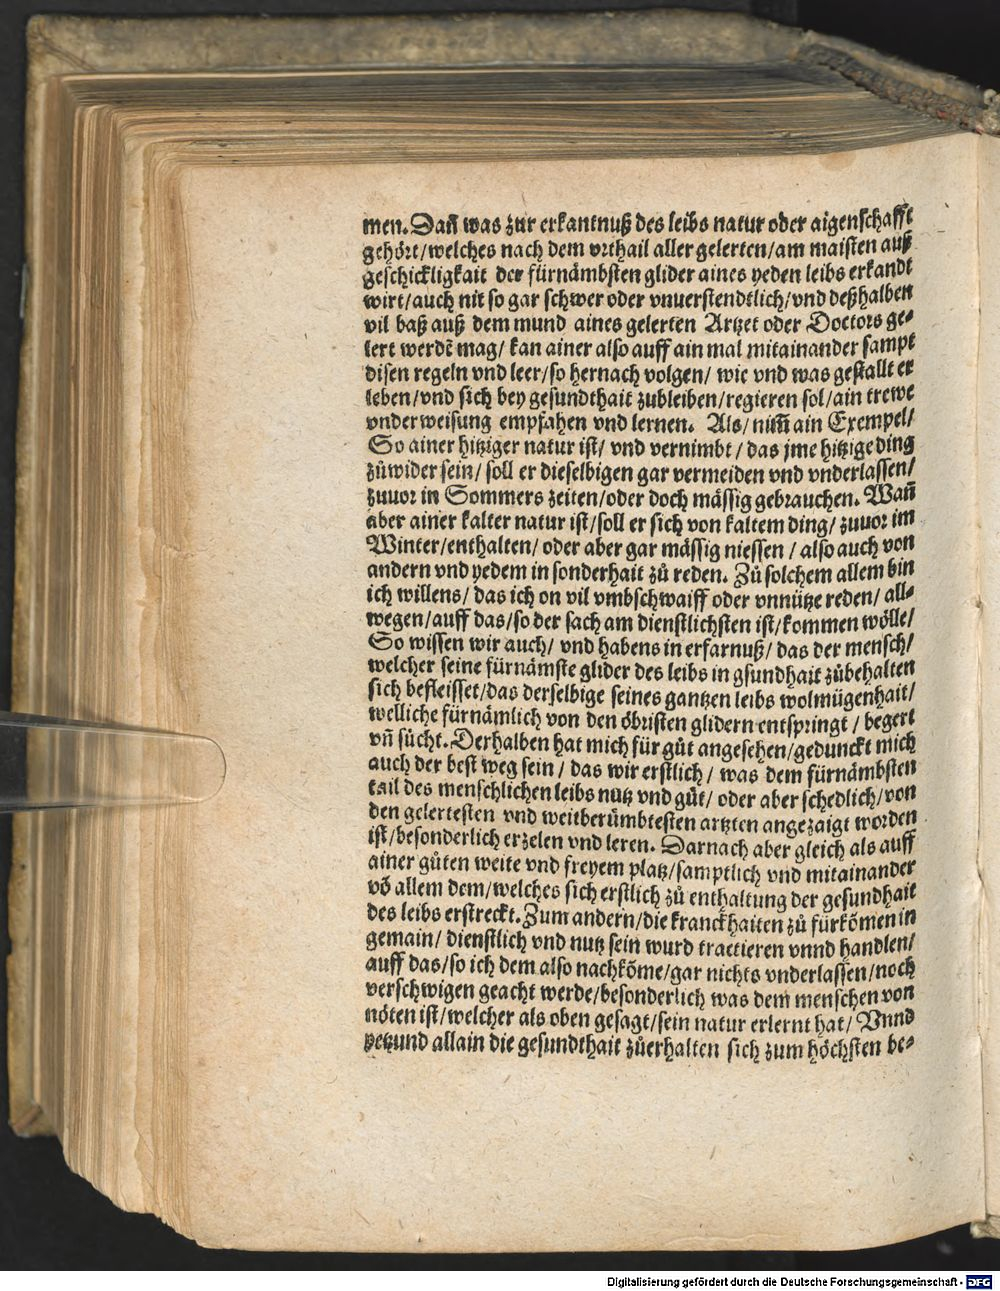 men. Dañ was zur erkantnuß des leibs natur oder aigenschafft
gehört/welches nach dem vrthail aller gelerten/am maisten auß
geschickligkait der fürnämbsten glider aines yeden leibs erkandt
wirt/auch nit so gar schwer oder vnuerstendtlich/vnd deßhalben
vil baß auß dem mund aines gelerten Artzet oder Doctors ge-
lert werdẽ mag/ kan ainer also auff ain mal mitainander sampt
disen regeln vnd leer/so hernach volgen/ wie vnd was gestallt er
leben/vnd sich bey gesundthait zubleiben/regieren sol/ain trewe
vnderweisung empfahen vnd lernen. Als/ nim̃ ain Exempel/
So ainer hitziger natur ist/ vnd vernimbt/ das jme hitzige ding
zůwider sein/ soll er dieselbigen gar vermeiden vnd vnderlassen/
zuuor in Sommers zeiten/oder doch mässig gebrauchen. Wañ
aber ainer kalter natur ist/soll er sich von kaltem ding/ zuuor im
Winter/enthalten/ oder aber gar mässig niessen/ also auch von
andern vnd yedem in sonderhait zů reden. Zů solchem allem bin
ich willens/ das ich on vil vmbschwaiff oder vnnütze reden/ all-
wegen/auff das/so der sach am dienstlichsten ist/kommen wölle/
So wissen wir auch/ vnd habens in erfarnuß/ das der mensch/
welcher seine fürnämste glider des leibs in gsundhait zůbehalten
sich befleisset/das derselbige seines gantzen leibs wolmügenhait/
welliche fürnämlich von den öbristen glidern entspringt/ begert
vñ sůcht. Derhalben hat mich für gůt angesehen/gedunckt mich
auch der best weg sein/ das wir erstlich/ was dem fürnämbsten
tail des menschlichen leibs nutz vnd gůt/ oder aber schedlich/von
den gelertesten vnd weitberümbtesten artzten angezaigt worden
ist/besonderlich erzelen vnd leren. Darnach aber gleich als auff
ainer gůten weite vnd freyem platz/samptlich vnd mitainander
võ allem dem/welches sich erstlich zů enthaltung der gesundhait
des leibs erstreckt. Zum andern/die kranckhaiten zů fürkõmen in
gemain/ dienstlich vnd nutz sein wurd tractieren vnnd handlen/
auff das/so ich dem also nachkõme/gar nichts vnderlassen/noch
verschwigen geacht werde/besonderlich was dem menschen von
nöten ist/welcher als oben gesagt/sein natur erlernt hat/ Vnnd
yetzund allain die gesundthait zůerhalten sich zum höchsten be-
Digitalisierung gefördert durch die Deutsche Forschungsgemeinschaft - DFG